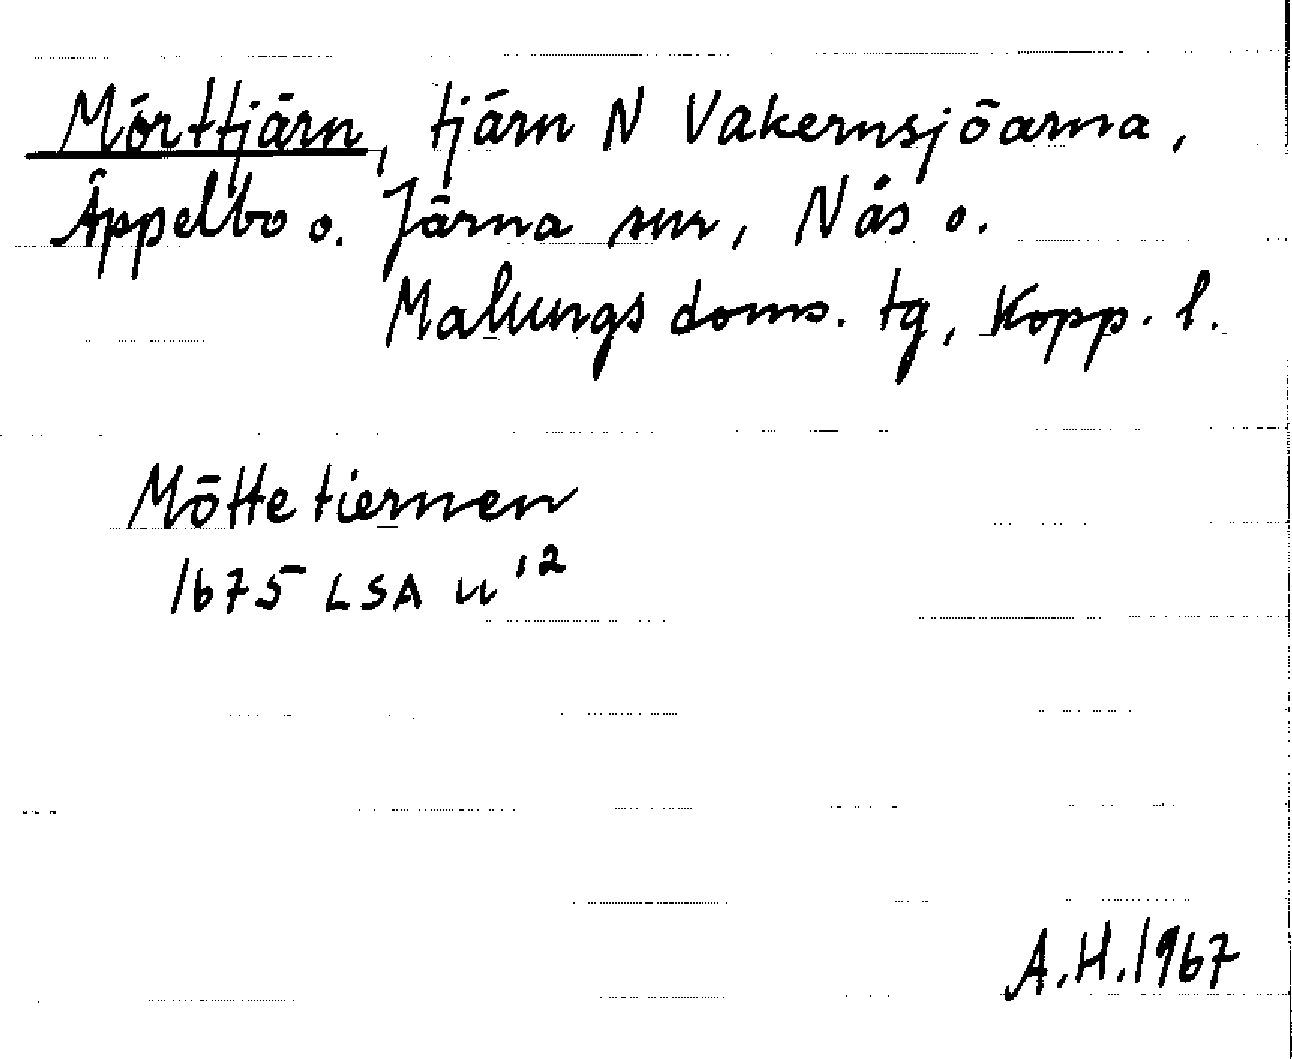 Mörttjärn, tjärn N Vakernsjöarna,
Äppelbo o. Järna snr, Nås o.
Malungs doms. tg, Kopp. l.
Mötte tiernen
1675 LSA u '2
A.H.1967